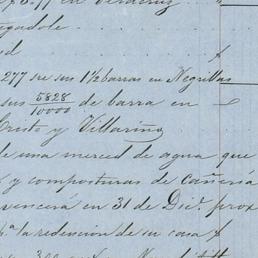 en Veracruz
pagadole
277 sre sus 1½ barras en Negrillas
sus 5828/10000 de barra en
Cristo y Villarino
de una merced de agua que
y composturas de Cañería
vencerá en 31 de Dice. prox
pa. la redención de su casa